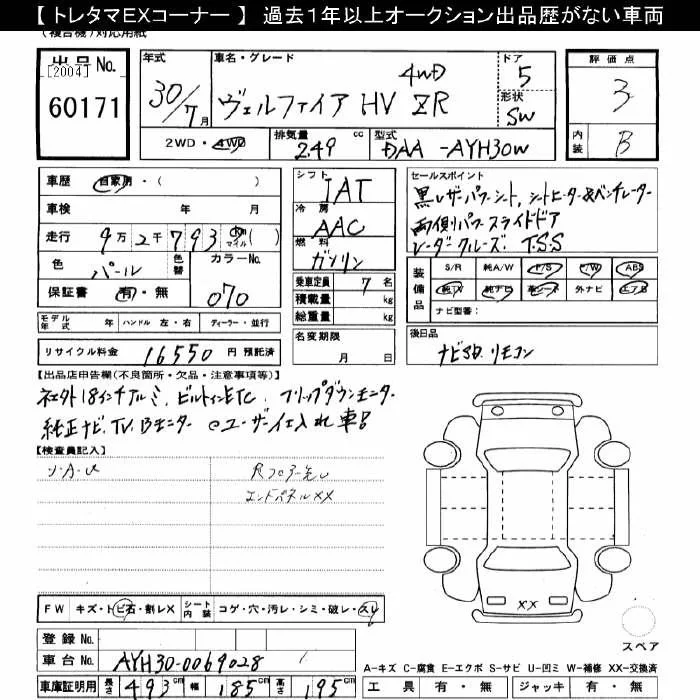 【 トレタマEXコーナー 】 過去1年以上オークション出品歴がない車両
(複合機)対応用紙
出品No.
[2004]
60171
年式
30/7月
車名・グレード
4WD
ヴェルファイア HV ZR
ドア
5
形状
SW
評価点
3
内装
B
2WD・4WD
排気量
249
cc
型式
DAA -AYH30W
車歴 自家用・( )
車検 年 月
走行 9万2千793 km マイル ( )
色 パール 色替 カラーNo.
070
保証書 有・無
モデル年式 年 ハンドル 左・右 ディーラー・並行
リサイクル料金 16550 円 預託済
シフト
IAT
冷房
AAC
燃料
ガソリン
乗車定員 7 名
積載量 kg
総重量 kg
名変期限
月 日
セールスポイント
黒レザーパワーシート、シートヒーター&ベンチレーター
両側パワースライドドア
レーダークルーズ T.S.S
装備品
S/R 純A/W P/S P/W ABS
純TV 純ナビ 革シート 外ナビ エアB
ナビ型番:
後日品
ナビSD. リモコン
【出品店申告欄(不良箇所・欠品・注意事項等)】
社外18インチアルミ、ビルトインETC、フリップダウンモニター
純正ナビ、TV、Bモニター @ユーザー仕入れ車
【検査員記入】
リ・A・U
Rフロアー先U
エンドパネルXX
FW キズ・トビ石・割レX シート内装 コゲ・穴・汚レ・シミ・破レ・スレ
登録No.
車台No. AYH30-0069028
車庫証明用 長さ 493 cm 幅 185 cm 高さ 195 cm
XX
スペア
A-キズ C-腐食 E-エクボ S-サビ U-凹ミ W-補修 XX-交換済
工具 有・無 ジャッキ 有・無